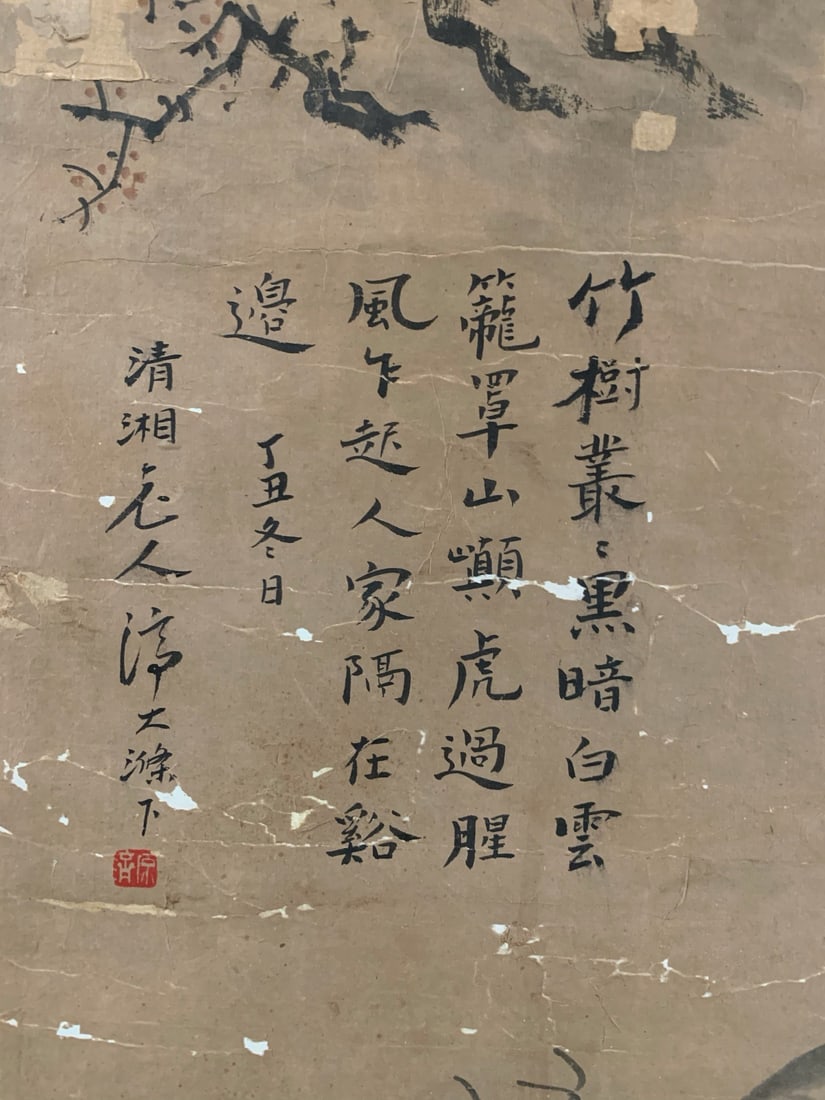 竹樹叢〻黑暗白雲
籠罩山巔虎過腥
風乍起人家隔在谿
邊
丁丑冬日
清湘老人濟大滌下
原濟